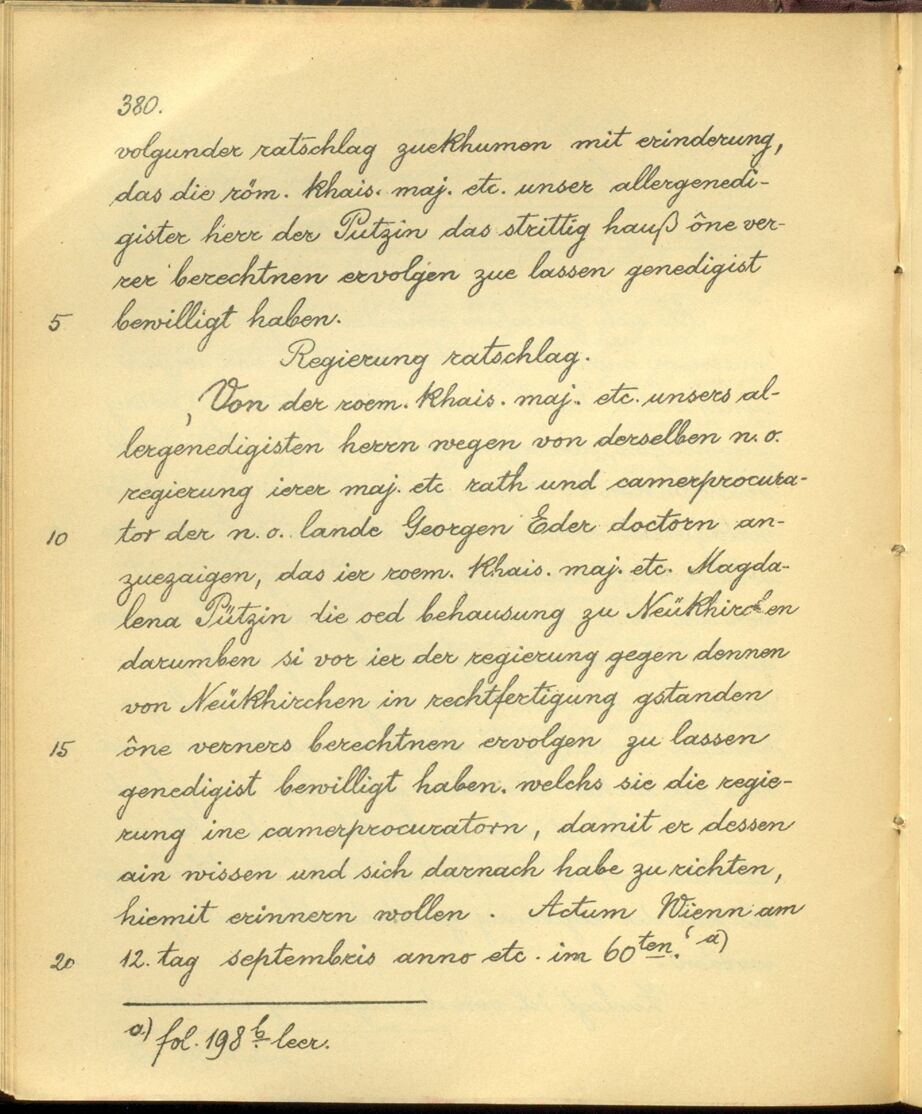 380.
volgunder ratschlag zuekhumen mit erinderung,
das die röm. khais. maj. etc. unser allergenedi-
gister herr der Putzin das strittig hauß ône ver-
rer berechtnen ervolgen zue lassen genedigist
5 bewilligt haben.
Regierung ratschlag.
‚Von der roem. khais. maj. etc. unsers al-
lergenedigisten herrn wegen von derselben n. o.
regierung ierer maj. etc rath und camerprocura-
10 tor der n. o. lande Georgen Eder doctorn an-
zuezaigen, das ier roem. khais. maj. etc. Magda-
lena Pützin die oed behausung zu Neükhirchen
darumben si vor ier der regierung gegen dennen
von Neükhirchen in rechtfertigung gstanden
15 ône verners berechtnen ervolgen zu lassen
genedigist bewilligt haben. welchs sie die regie-
rung ine camerprocuratorn, damit er dessen
ain wissen und sich darnach habe zu richten,
hiemit erinnern wollen. Actum Wienn am
20 12. tag septembris anno etc. im 60ten.‘ a)
a) fol. 198b leer.